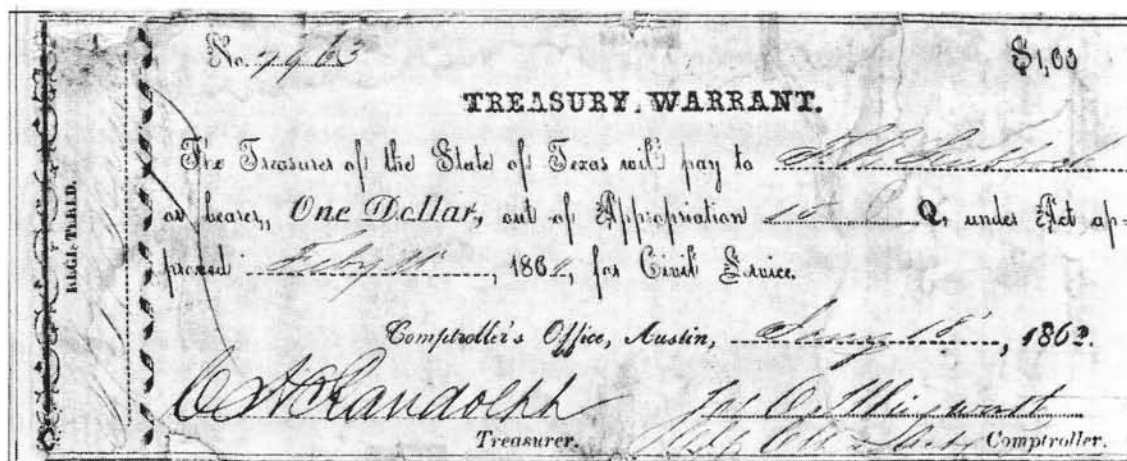 No. $1,00
TREASURY WARRANT.
The Treasurer of the State of Texas will pay to
or bearer, One Dollar, out of Appropriation Q, under Act ap-
proved Feby 11, 186, for Civil Service.
Comptroller's Office, Austin, Jany 18, 1863.
C H Randolph
Treasurer. Comptroller.
REGISTERED.